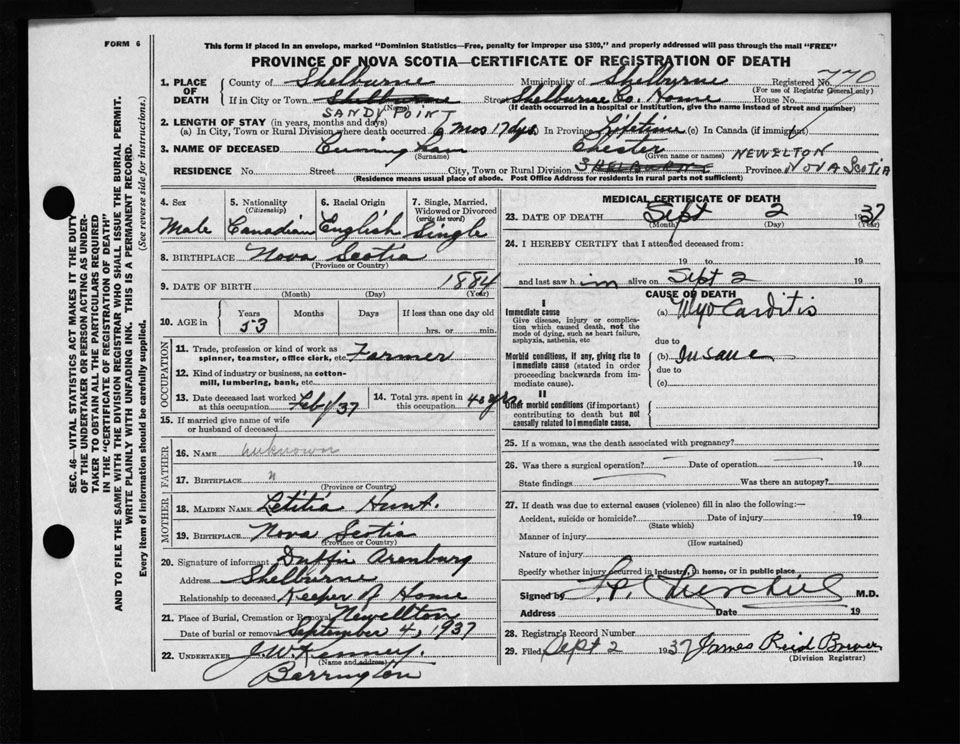 FORM 6
This form if placed in an envelope, marked "Dominion Statistics—Free, penalty for improper use $300," and properly addressed will pass through the mail "FREE"
PROVINCE OF NOVA SCOTIA—CERTIFICATE OF REGISTRATION OF DEATH
1. PLACE OF DEATH
County of Shelburne Municipality of Shelburne Registered No. 770
(For use of Registrar General only)
If in City or Town Shelburne Street Shelburne Co. Home House No.
(Name) (If death occurred in a hospital or institution, give the name instead of street and number)
SANDY POINT
2. LENGTH OF STAY (in years, months and days)
(a) In City, Town or Rural Division where death occurred 6 mos 17 dys. In Province Lifetime (c) In Canada (if immigrant)
3. NAME OF DECEASED Cunningham Chester
(Surname) (Given name or names)
NEWELTON
RESIDENCE No. Street City, Town or Rural Division SHELBURNE Province NOVA SCOTIA
(Residence means usual place of abode. Post Office Address for residents in rural parts not sufficient)
4. Sex
Male
5. Nationality (Citizenship)
Canadian
6. Racial Origin
English
7. Single, Married, Widowed or Divorced (write the word)
Single
8. BIRTHPLACE Nova Scotia
(Province or Country)
9. DATE OF BIRTH 1884
(Month) (Day) (Year)
10. AGE in Years Months Days If less than one day
53 hrs. or min.
OCCUPATION
11. Trade, profession or kind of work as spinner, teamster, office clerk, etc. Farmer
12. Kind of industry or business, as cotton-mill, lumbering, bank, etc.
13. Date deceased last worked at this occupation Feb/37
14. Total yrs. spent in this occupation 40 yrs.
15. If married give name of wife or husband of deceased
FATHER
16. NAME unknown
17. BIRTHPLACE "
(Province or Country)
MOTHER
18. MAIDEN NAME Letitia Hunt.
19. BIRTHPLACE Nova Scotia
(Province or Country)
20. Signature of informant Duffie Arenburg
Address Shelburne
Relationship to deceased Keeper of Home
21. Place of Burial, Cremation or Removal Newellton
Date of burial or removal September 4, 1937
22. UNDERTAKER J. W. Kenney.
(Name and address)
Barrington
MEDICAL CERTIFICATE OF DEATH
23. DATE OF DEATH Sept 2 1937
(Month) (Day) (Year)
24. I HEREBY CERTIFY that I attended deceased from:
19 to 19
and last saw him alive on Sept 2 19
CAUSE OF DEATH
I
Immediate cause
Give disease, injury or complication which caused death, not the mode of dying, such as heart failure, asphyxia, asthenia, etc
(a) Myocarditis
due to
Morbid conditions, if any, giving rise to immediate cause (stated in order proceeding backwards from immediate cause).
(b) Insane
due to
(c)
II
Other morbid conditions (if important) contributing to death but not causally related to immediate cause.
25. If a woman, was the death associated with pregnancy?
26. Was there a surgical operation? Date of operation 19
State findings Was there an autopsy?
27. If death was due to external causes (violence) fill in also the following:—
Accident, suicide or homicide? Date of injury 19
(State which)
Manner of injury
(How sustained)
Nature of injury
Specify whether injury occurred in industry, in home, or in public place
Signed by Churchill M.D.
Address Date 19
28. Registrar's Record Number
29. Filed Sept 2 1937 James Reid Bower
(Division Registrar)
SEC. 46—VITAL STATISTICS ACT MAKES IT THE DUTY
OF THE UNDERTAKER OR PERSON ACTING AS UNDER-
TAKER TO OBTAIN ALL THE PARTICULARS REQUIRED
IN THE "CERTIFICATE OF REGISTRATION OF DEATH"
AND TO FILE THE SAME WITH THE DIVISION REGISTRAR WHO SHALL ISSUE THE BURIAL PERMIT.
WRITE PLAINLY WITH UNFADING INK. THIS IS A PERMANENT RECORD.
Every item of information should be carefully supplied. (See reverse side for instructions.)